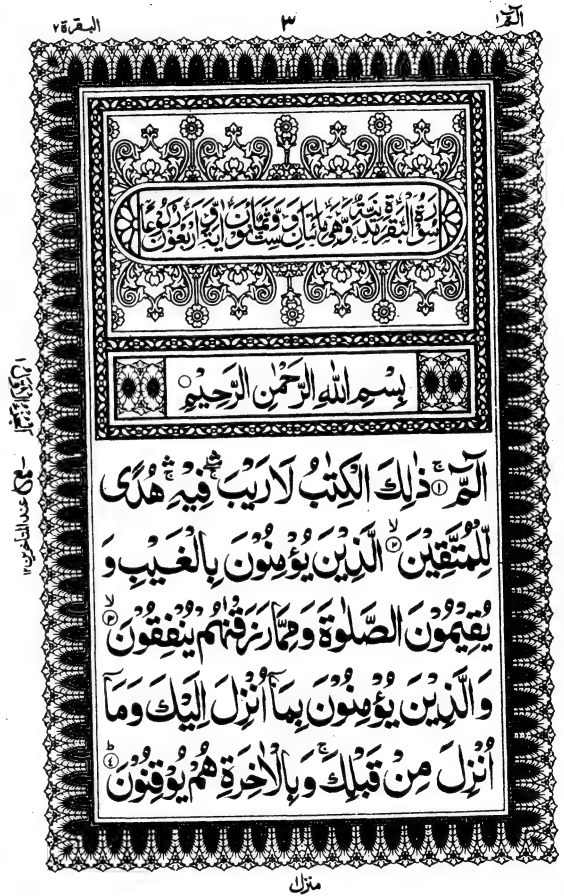 الٓمّٓ ١
٣
البقرة ٢
سُوْرَةُ الْبَقَرَةِ مَدَنِيَّةٌ وَّهِيَ مِائَتَانِ وَّسِتٌّ وَّثَمَانُوْنَ اٰيَةً وَّاَرْبَعُوْنَ رُكُوْعًا
بِسْمِ اللّٰهِ الرَّحْمٰنِ الرَّحِيْمِ ○
الٓمّٓ ۚ﴿١﴾ ذٰلِكَ الْكِتٰبُ لَا رَيْبَ ۛۚ فِيْهِ ۛۚ هُدًى
لِّلْمُتَّقِيْنَ ۙ﴿٢﴾ الَّذِيْنَ يُؤْمِنُوْنَ بِالْغَيْبِ وَ
يُقِيْمُوْنَ الصَّلٰوةَ وَمِمَّا رَزَقْنٰهُمْ يُنْفِقُوْنَ ۙ﴿٣﴾
وَالَّذِيْنَ يُؤْمِنُوْنَ بِمَاۤ اُنْزِلَ اِلَيْكَ وَمَاۤ
اُنْزِلَ مِنْ قَبْلِكَ ۚ وَبِالْاٰخِرَةِ هُمْ يُوْقِنُوْنَ ؕ﴿٤﴾
عند المتاخرين ١٢
منزل ١